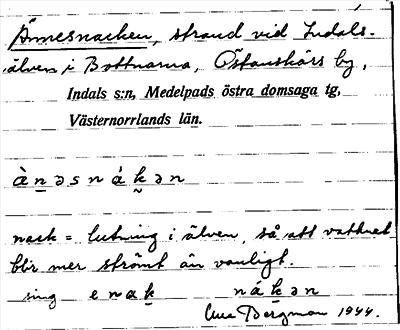 Ånnesnacken, strand vid Indals-
älven i Bottnarna, Östanskärs by,
Indals s:n, Medelpads östra domsaga tg,
Västernorrlands län.
ànəsnákən
nack = lutning i älven, så att vattnet
blir mer strömt än vanligt.
sing enak nákən
Bergman 1944.